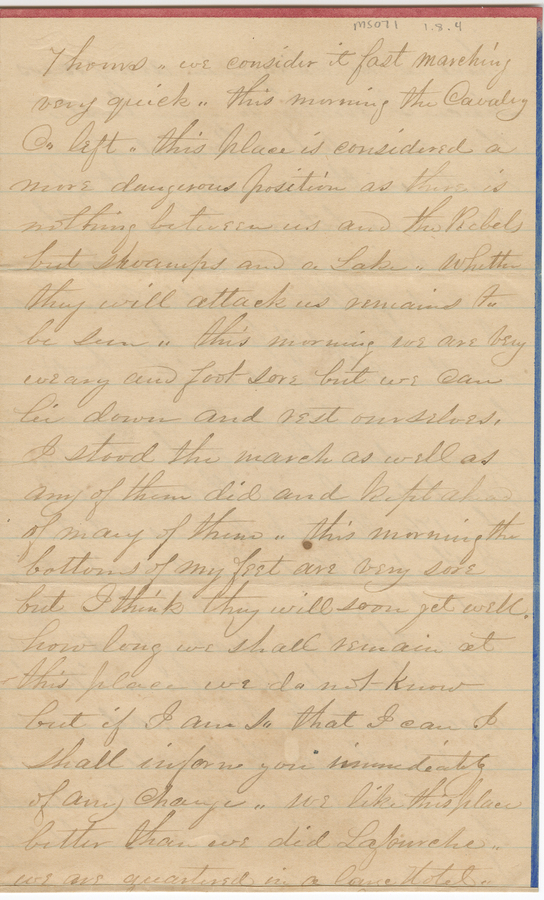 MS071 1.8.4
7 hours " we consider it fast marching
very quick " this morning the Cavalry
Co left " this place is considered a
more dangerous position as there is
nothing between us and the Rebels
but swamps and a Lake " Whether
they will attack us remains to
be seen " this morning we are very
weary and foot sore but we can
lie down and rest ourselves.
I stood the march as well as
any of them did and kept ahead
of many of them " this morning the
bottoms of my feet are very sore
but I think they will soon get well.
how long we shall remain at
this place we do not know
but if I am so that I can I
shall inform you immediately
of any change " we like this place
better than we did Lafourche "
we are quartered in a large Hotel "